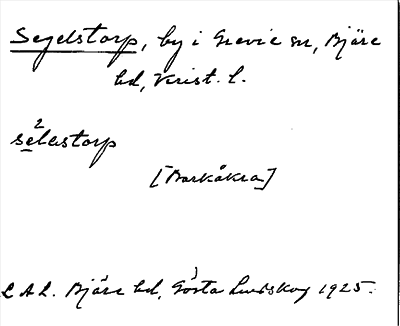 Segelstorp, by i Grevie sn, Bjäre
hd, Krist. l.
2
selastorp
[Barkåkra]
L A L. Bjäre hd, Gösta Lundskog 1925.